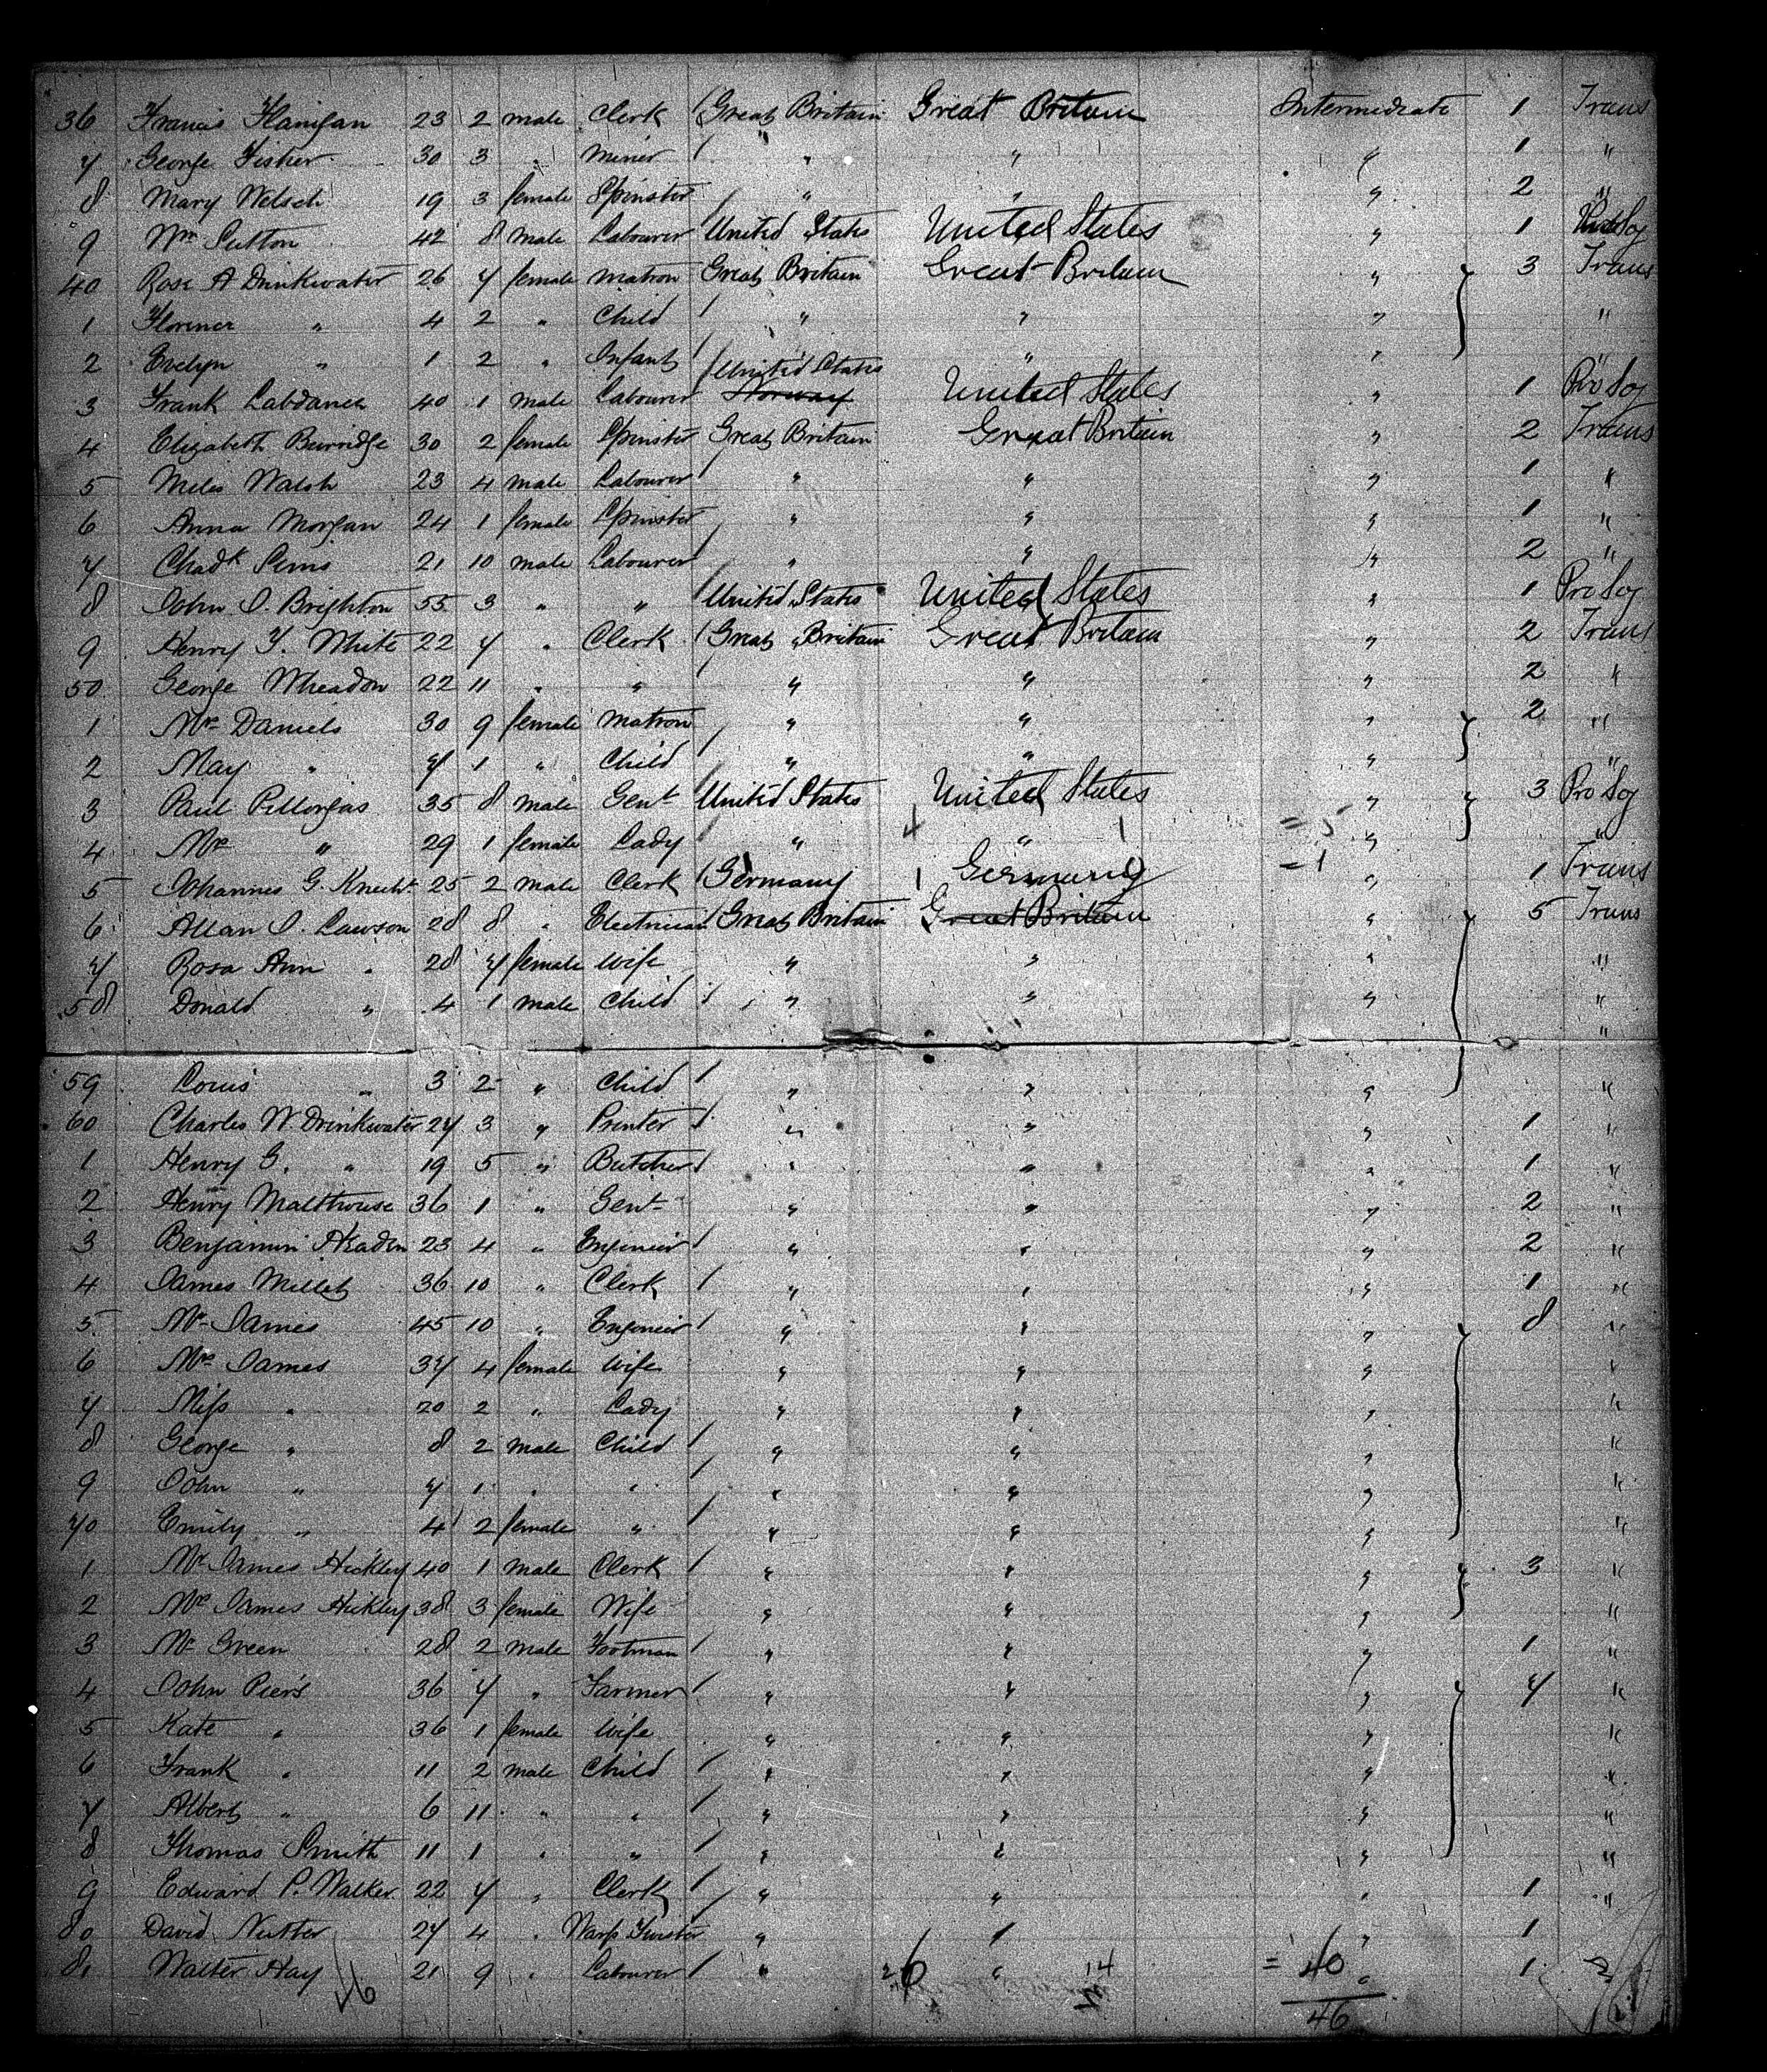 36 Francis Flanigan 23 2 male Clerk / Great Britain Great Britain Intermediate 1 Trans
7 George Fisher 30 3 " Miner / " " " 1 "
8 Mary Welsch 19 3 female Spinster / " " " 2 "
9 Wm Sutton 42 8 Male Labourer United States United States " 1 Pro Soj
40 Rose A Drinkwater 26 7 female Matron Great Britain Great Britain " 3 Trans
1 Florence " 4 2 " Child / " " " "
2 Evelyn " 1 2 " Infant / " " "
3 Frank Labdanch 40 1 Male Labourer / United States Norway United States " 1 Pro Soj
4 Elizabeth Burridge 30 2 female Spinster Great Britain Great Britain " 2 Trans
5 Miles Walsh 23 4 Male Labourer / " " " 1 "
6 Anna Morgan 24 1 female Spinster " " " 1 "
7 Chadk Sims 21 10 male Labourer / " " " 2 "
8 John J. Brighton 55 3 " " / United States United States " 1 Pro Soj
9 Henry F. White 22 7 " Clerk / Great Britain Great Britain " 2 Trans
50 George Wheadon 22 11 " " " " " 2 "
1 Mrs Daniels 30 9 female Matron " " " 2 "
2 May " 7 1 " Child / " " " "
3 Paul Pillorgas 35 8 Male Gent United States United States " 3 Pro Soj
4 Mrs " 29 1 female Lady " " = 5 " "
5 Johannes G. Knecht 25 2 male Clerk / Germany 1 Germany = 1 " 1 Trans
6 Allan J. Lawson 28 8 " Electrician / Great Britain Great Britain " 5 Trans
7 Rosa Ann " 28 7 female Wife " " " "
58 Donald " 4 1 male Child / " " " "
59 Louis " 3 2 " Child / " " " "
60 Charles W Drinkwater 27 3 " Printer / " " " 1 "
1 Henry G. " 19 5 " Butcher / " " " 1 "
2 Henry Malthouse 36 1 " Gent " " " 2 "
3 Benjamin Headen 23 4 " Engineer / " " " 2 "
4 James Millet 36 10 " Clerk / " " " 1 "
5 Mr James 45 10 " Engineer / " " " 8 "
6 Mrs James 37 4 female Wife " " " "
7 Miss " 20 2 " Lady " " " "
8 George " 8 2 male Child / " " " "
9 John " 7 1 " " / " " " "
70 Emily " 4 2 female " / " " " "
1 Mr James Hickley 40 1 male Clerk / " " " 3 "
2 Mrs James Hickley 38 3 female Wife " " " "
3 Mr Green 28 2 male Footman / " " " 1 "
4 John Piers 36 7 " Farmer / " " " 7 "
5 Kate " 36 1 female Wife " " " "
6 Frank " 11 2 male Child / " " " "
7 Albert " 6 11 " " / " " " "
8 Thomas Smith 11 1 " " / " " " "
9 Edward P. Walker 22 7 " Clerk / " " " 1 "
80 David Nutter 27 4 " Warp Twister / " " " 1
81 Walter Hay 21 9 " Labourer / " 26 " 14 = 40 " 1
46